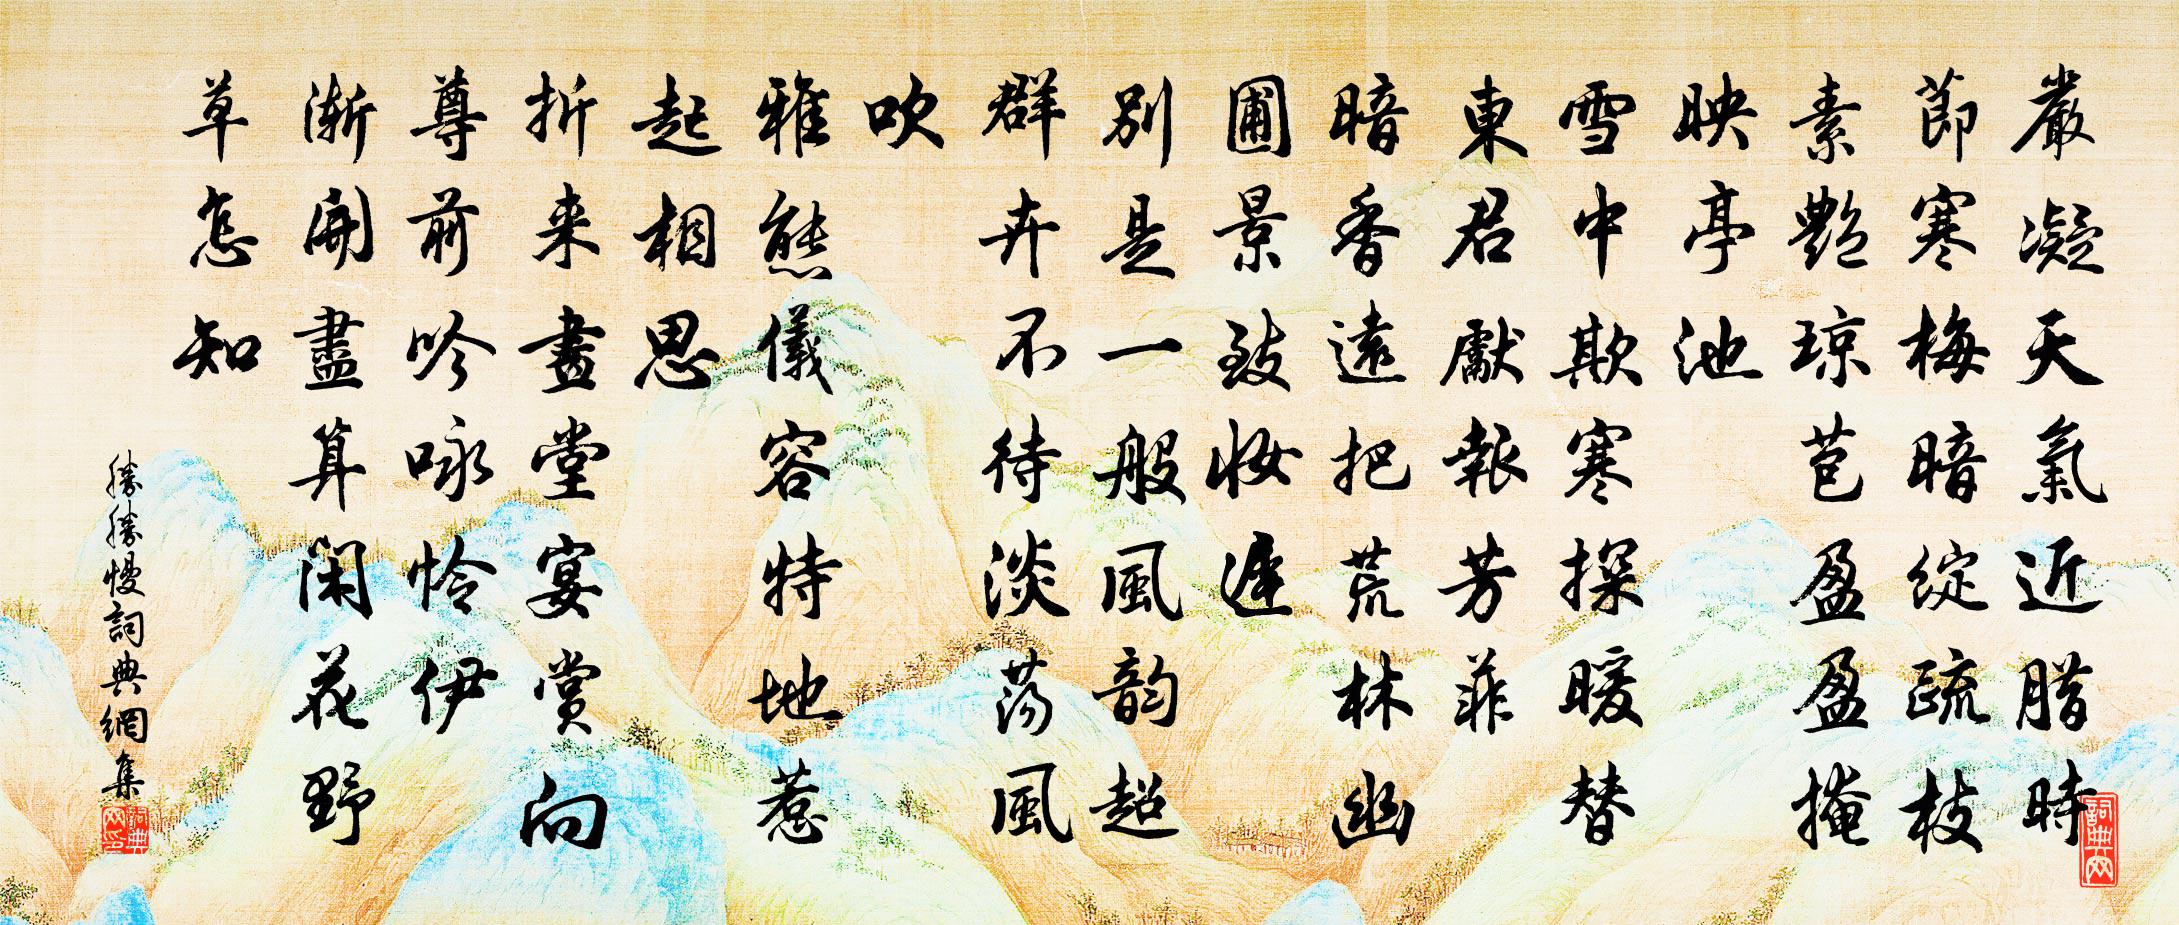 嚴凝天氣近腊時
節寒梅暗綻疏枝
素艷琼苞盈盈掩
映亭池
雪中欺寒探暖替
東君獻報芳菲
暗香遠把荒林幽
圃景致妝遲
別是一般風韵超
群卉不待淡荡風
吹
雅態儀容特地惹
起相思
折来畫堂宴賞向
尊前吟咏怜伊
漸開盡算闲花野
草怎知
勝勝慢詞典網集
詞典网
詞典网印